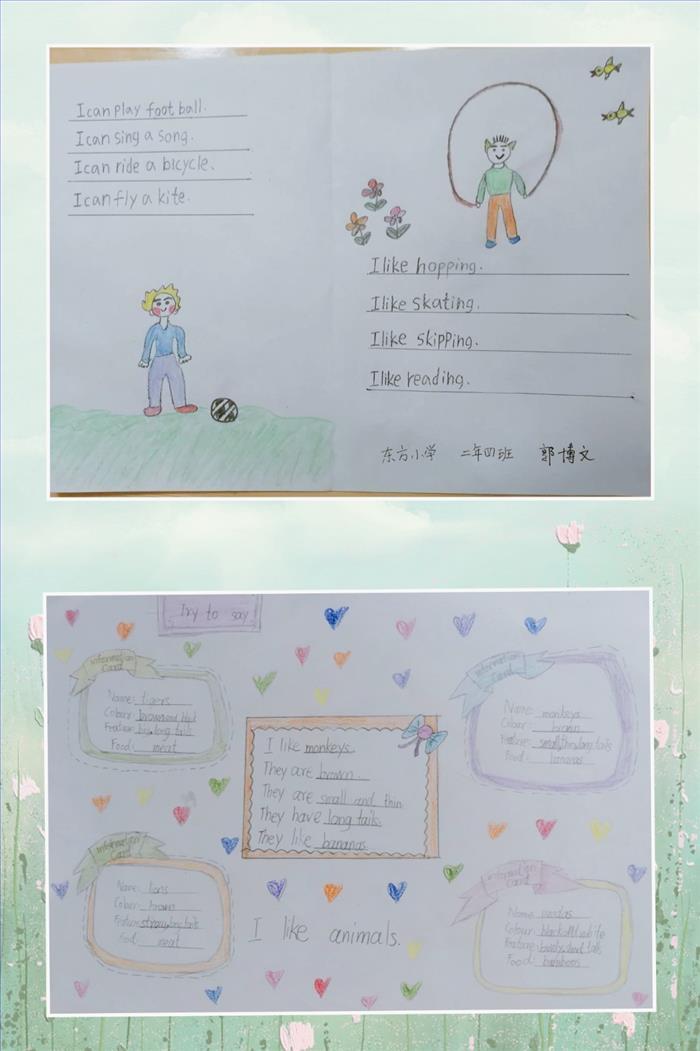 I can play football.
I can sing a song.
I can ride a bicycle.
I can fly a kite.
I like hopping.
I like skating.
I like skipping.
I like reading.
东方小学 二年四班 郭博文
Try to say
Information Card
Name: tigers
Colour: brown and
Feature: big, long tails
Food: meat
Information Card
Name: monkeys
Colour: brown
Feature: small, thin, long tails
Food: bananas
I like monkeys.
They are brown.
They are small and thin.
They have long tails.
They like bananas.
Information Card
Name: lions
Colour: brown
Feature: strong, long tails
Food: meat
I like animals.
Information Card
Name: pandas
Colour: black and white
Feature: tails
Food: bamboos